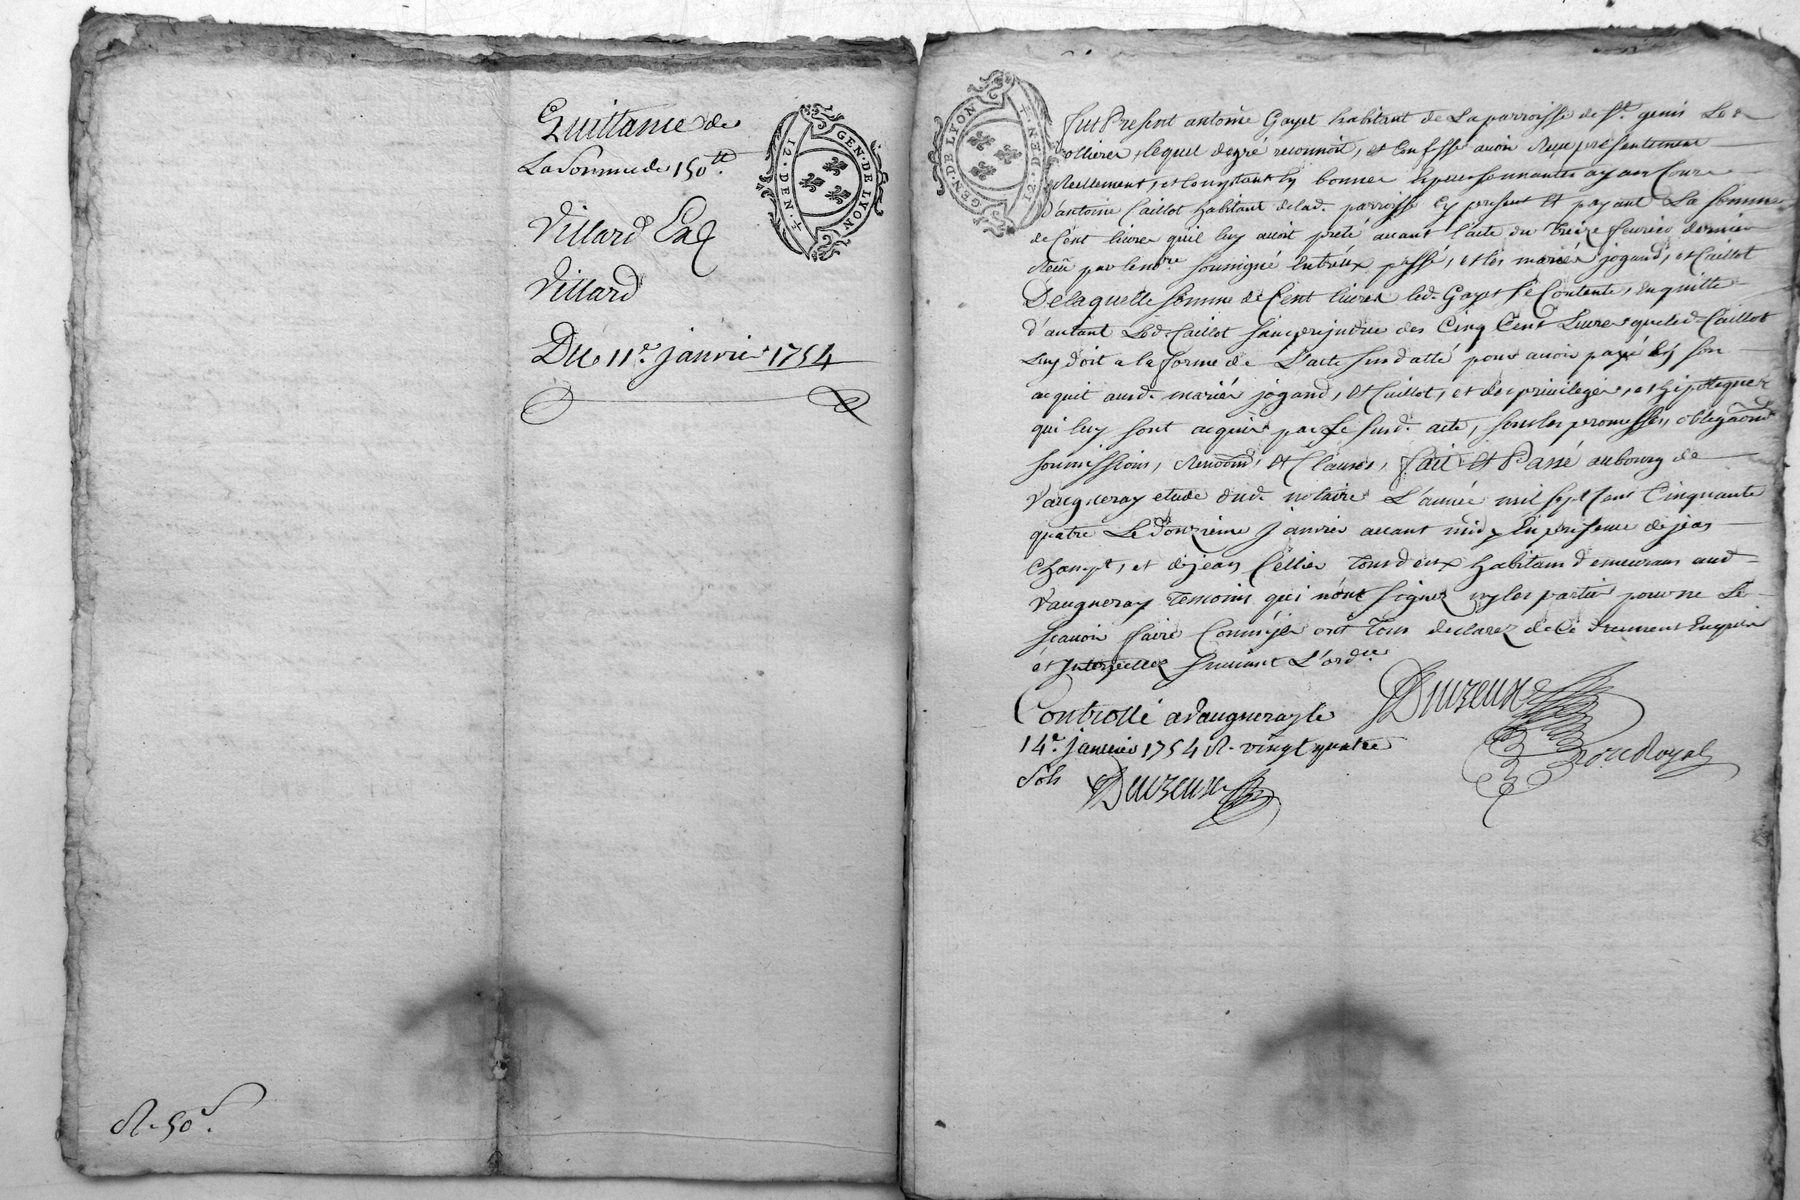 Quittance de
La Somme de 150 tt
Villard Ea
Villard
Du 11e. janvier 1754
GEN. DE LYON
12. DEN. 4
R. 50 s.
GEN. DE LYON
12. DEN. 4
Fut Present antoine Gayet habitant de La parroisse de St. genis Les
ollieres, lequel degré reconnoit, et Confesse avoir Receu presentement
Réellement, et Comptant En bonnes Especes sonnantes ayans Cours
d'antoine Caillot habitant de lad. parroisse Cy present Et payant La somme
de Cent livres quil luy avoit prété avant l'acte du treize fevrier dernier
Receu par le nore. soussigné Entr'eux passé, et les mariés jogand, et Caillot
De laquelle somme de Cent livres led. Gayet se Contente, En quitte
d'autant Led. Caillot sans prejudice des Cinq Cent Livres que led. Caillot
Luy doit a la forme de L'acte susdatté pour avoir payé En son
acquit auxd. mariés jogand, Et Caillot, et des privileges, et hipoteques
qui luy sont acquis par Le susd. acte, sous les promesses, obligaons
soumissions, Renoons, Et Clauses, fait Et Passé au bourg de
Vaugneray etude dud. notaire L'année mil sept Cent Cinquante
quatre Le Douzieme Janvier avant midy En presence de jean
et de jean Cellier tous deux habitans demeurans aud.
Vaugneray Temoins qui n'ont signez ny les parties pour ne Le
scavoir faire Comm'ils ont Tous declarez de Ce Deuement Enquis
et Interpellez suivant L'ordce.
Controllé a Vaugneray le
14e. janvier 1754 R. vingt quatre
Sols
Noe. Royal